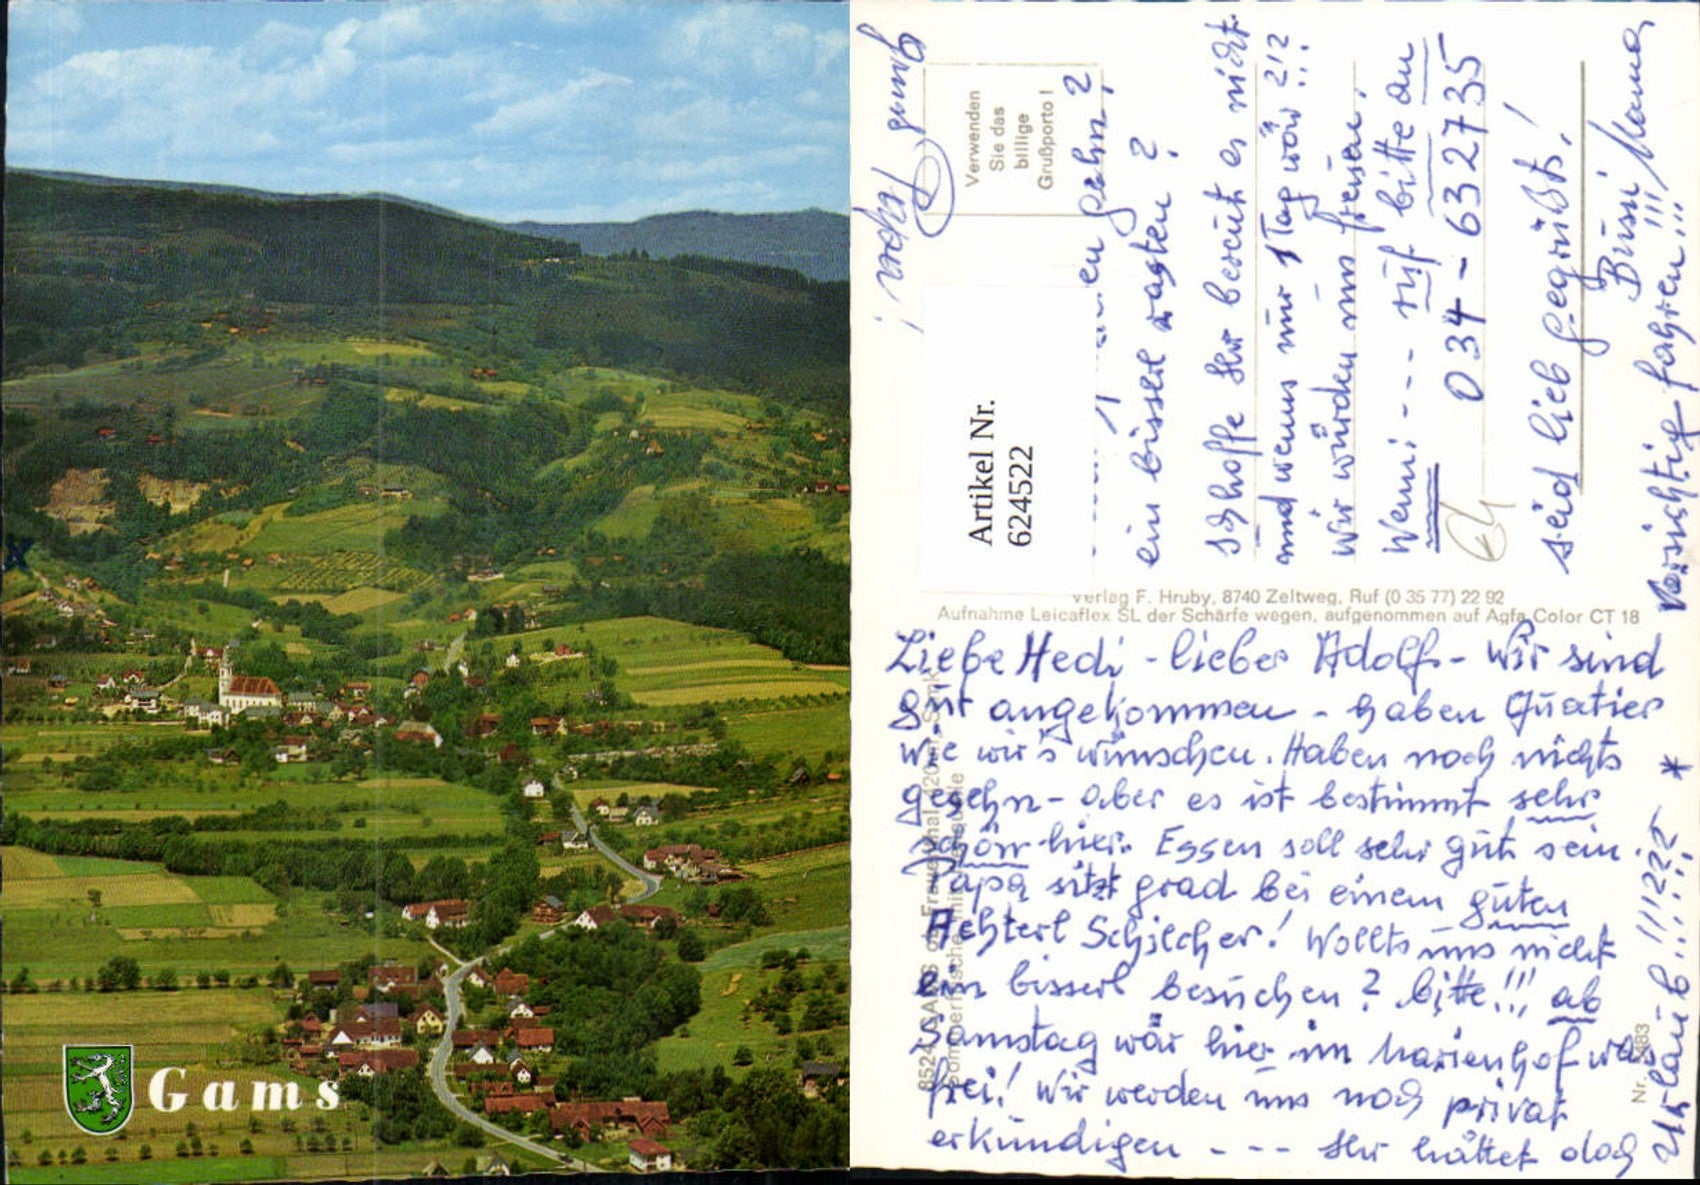 Gams
Liebe Hedi - lieber Adolf - Wir sind
gut angekommen - haben Quatier
wie wir's wünschen. Haben noch nichts
gesehn - aber es ist bestimmt sehr
schön hier. Essen soll sehr gut sein.
Papa sitzt grad bei einem guten
Achterl Schilcher! Wollts uns nicht
ein bisserl besuchen? bitte!!! ab
Samstag wär hier im Marienhof was
frei! Wir werden uns noch privat
erkundigen - - - - Ihr hättet doch
Urlaub!!!!
Nr.
Verlag F. Hruby, 8740 Zeltweg, Ruf (0 35 77) 22 92
Aufnahme Leicaflex SL der Schärfe wegen, aufgenommen auf Agfa Color CT 18
Verwenden
Sie das
billige
Grußporto !
Artikel Nr.
624522
ein bisserl rasten?
Ich hoffe Ihr bereut es nicht
und wenns nur 1 Tag wär 2 1/2 !!!
Wir würden uns freuen.
Wenn: - - - ruf bitte an
034 - 632735
seid lieb gegrüßt!
Bussi Mama
Vorsichtig fahren!!!